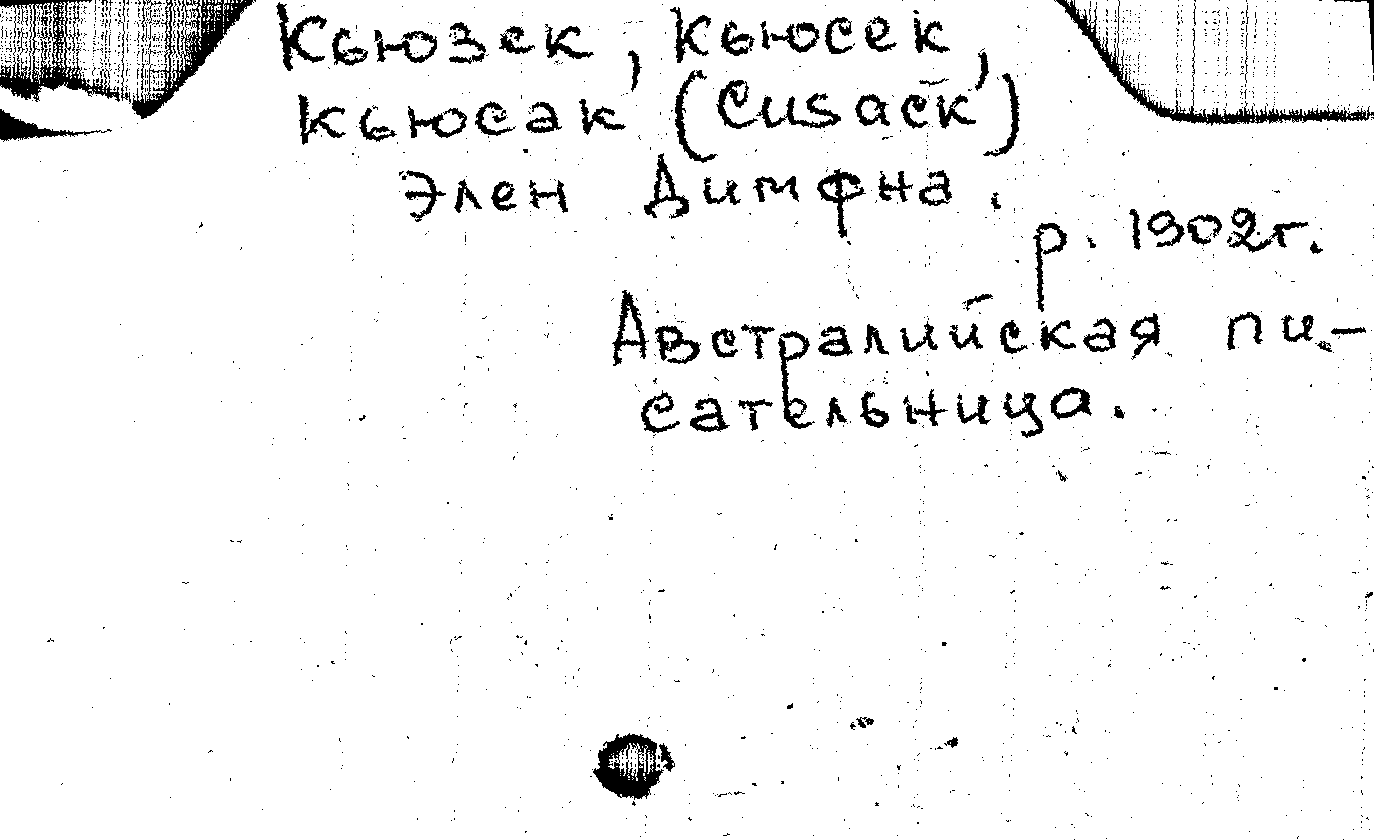 Кьюзек, Кьюсек,
Кьюсак (Cusack)
Элен Димфна.
р. 1902г.
Австралийская пи-
сательница.